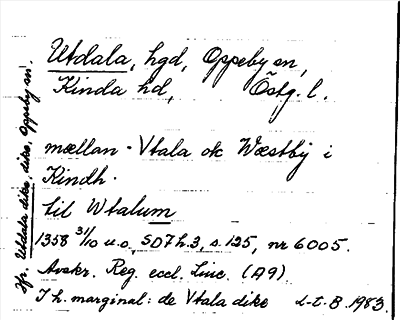 Utdala, hgd, Oppeby sn,
Kinda hd, Östg. l.
mællan · Vtala ok Wæstby i
Kindh.
til Wtalum
1358 31/10 u.o, SD7 h.3, s. 125, nr 6005.
Avskr. Reg. eccl. Linc. (A9)
I h. marginal: de Vtala dike L-E. B. 1983.
Jfr. Utdala dike, dike, Oppeby sn.